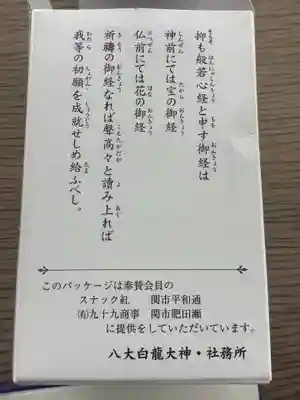 抑も般若心経と申す御経は
神前にては宝の御経
仏前にては花の御経
祈禱の御経なれば聲高々と讀み上れば
我等の初願を成就せしめ給ふべし。
このパッケージは奉賛会員の
スナック紅 関市平和通
㈲九十九商事 関市肥田瀬
に提供をしていただいています。
八大白龍大神・社務所